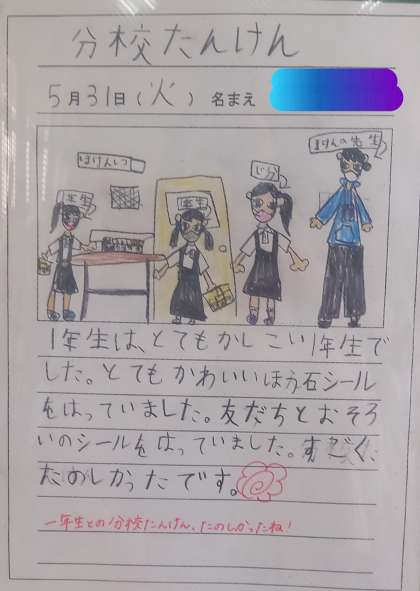 分校たんけん
5月31日(火) 名まえ
ほけんしつ
1年生
1年生
じ分
ほけんの先生
1年生は、とてもかしこい1年生で
した。とてもかわいいほう石シール
をはっていました。友だちとおそろ
いのシールをはっていました。すごく、
たのしかったです。
一年生との分校たんけん、たのしかったね!